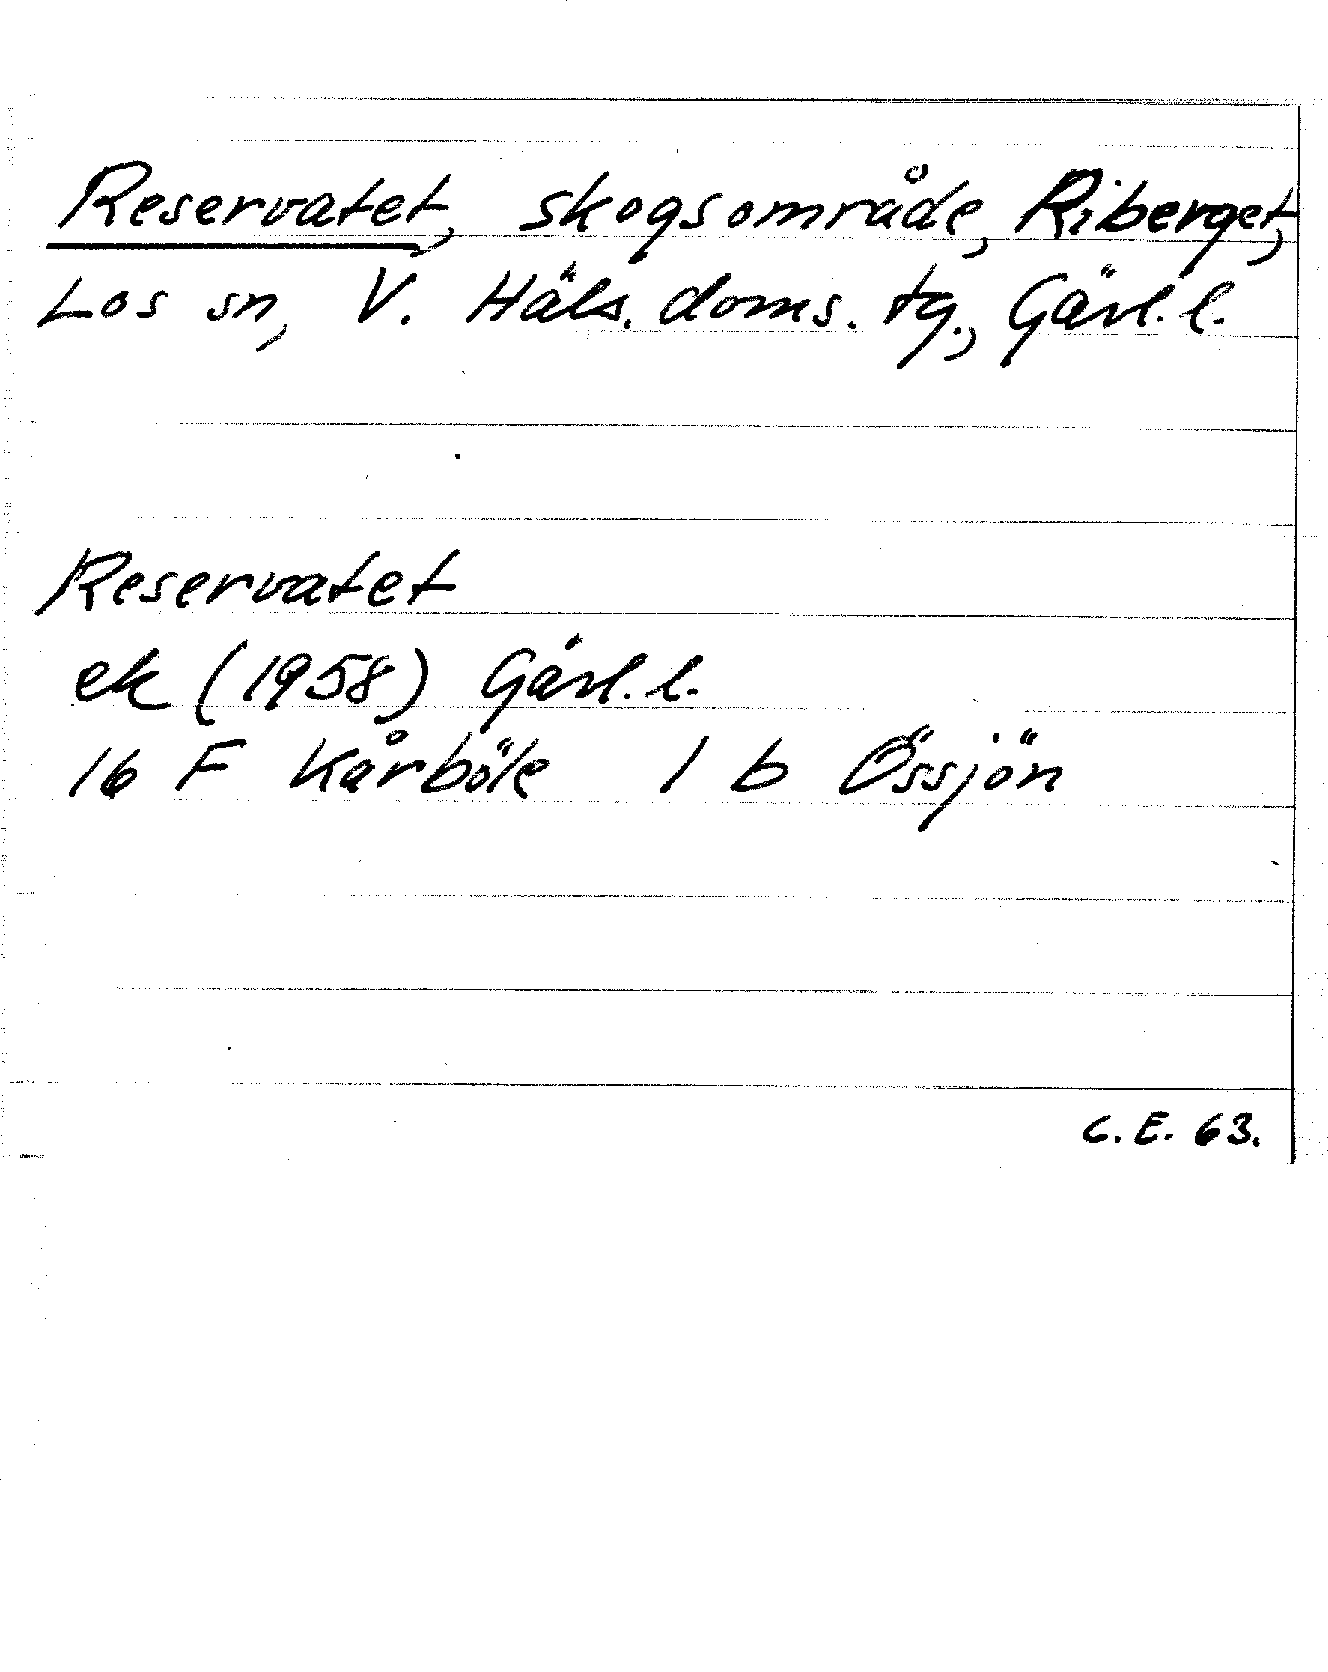 Reservatet, skogsområde, Riberget,
Los sn, V. Häls. doms. tg., Gävl. l.
Reservatet
ek (1958) Gävl. l.
16 F Kårböle 1 b Össjön
C. E. 63.